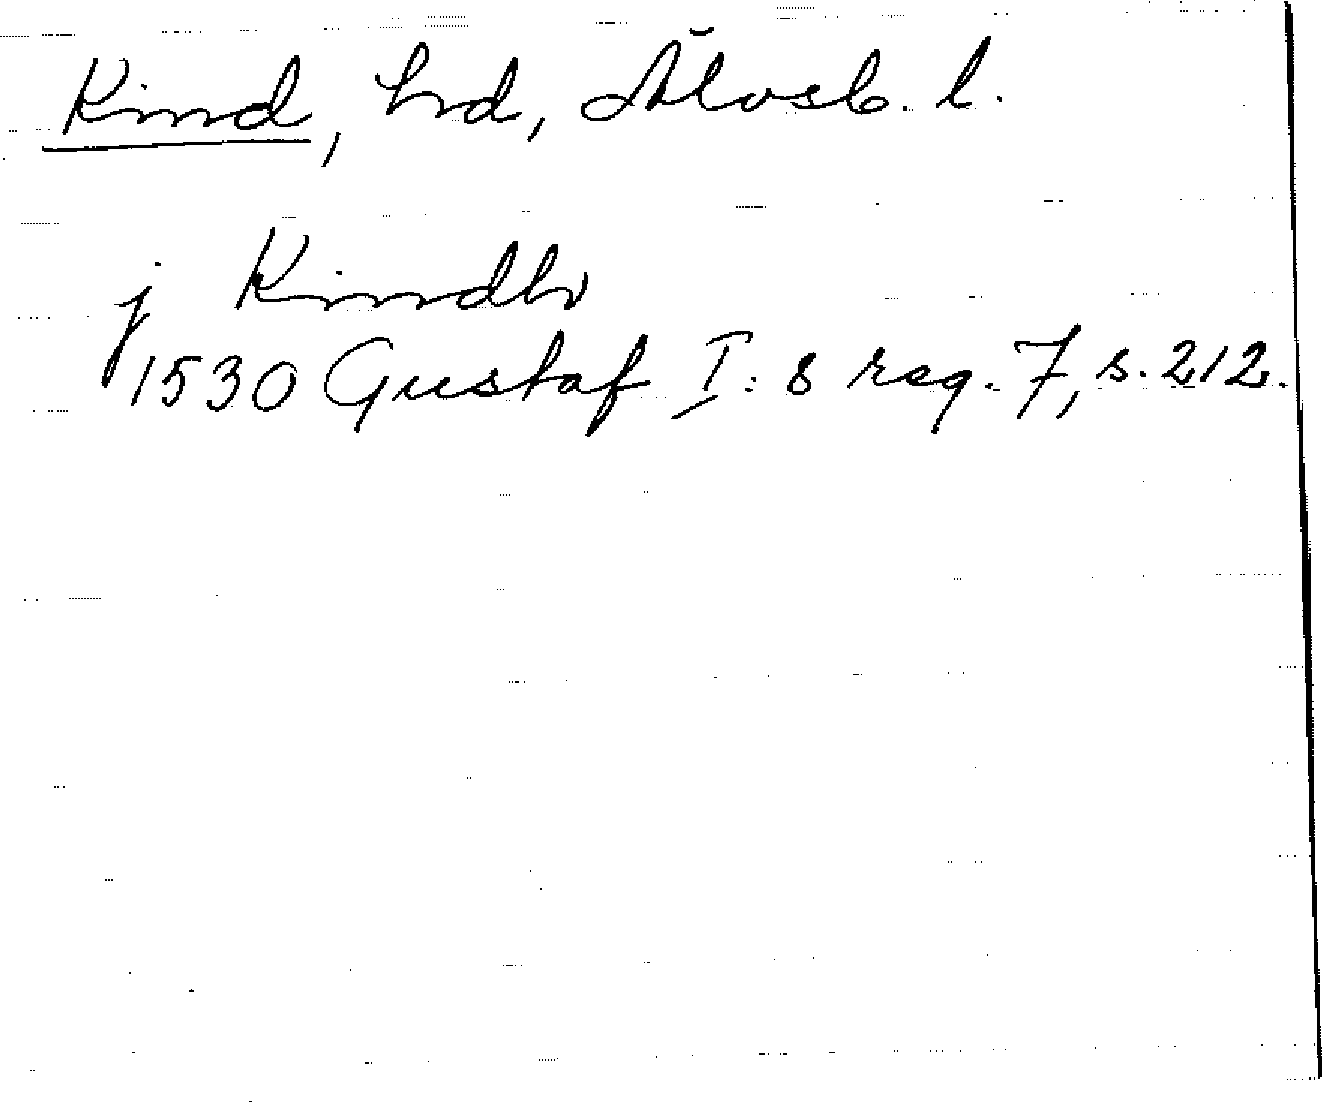 Kind, hd, Älvsb. l.
j Kindh
1530 Gustaf I:s reg. 7, s. 212.